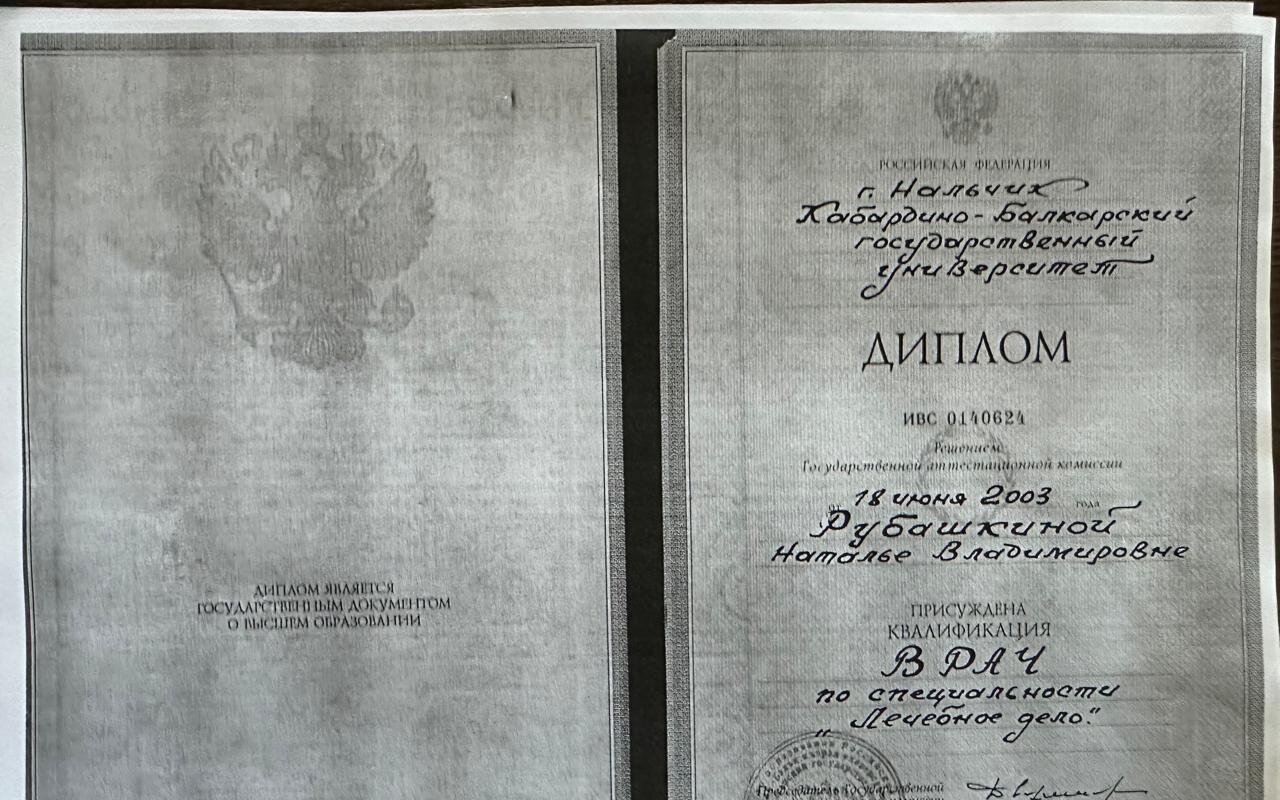 ДИПЛОМ ЯВЛЯЕТСЯ
ГОСУДАРСТВЕННЫМ ДОКУМЕНТОМ
О ВЫСШЕМ ОБРАЗОВАНИИ
РОССИЙСКАЯ ФЕДЕРАЦИЯ
г. Нальчик
Кабардино-Балкарский
государственный
университет
ДИПЛОМ
ИВС 0140624
Решением
Государственной аттестационной комиссии
18 июня 2003 года
Рубашкиной
Наталье Владимировне
ПРИСУЖДЕНА
КВАЛИФИКАЦИЯ
ВРАЧ
по специальности
„Лечебное дело."
Председатель Государственной